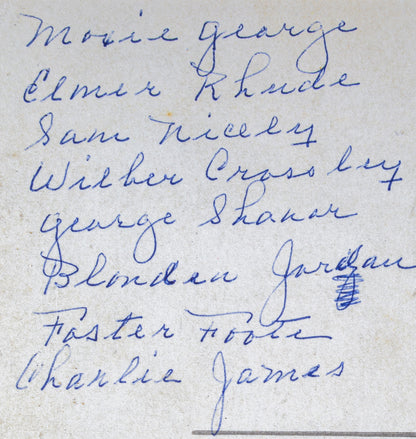 Moxie George
Elmer Rhude
Sam Nicely
Wilber Crossley
George Shanor
Blonden Jordan
Foster Foote
Charlie James